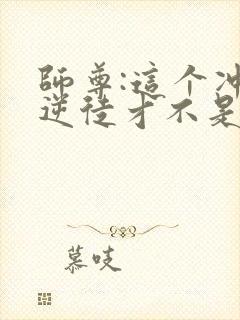 師尊:這个冲
逆徒才不是
慕吱